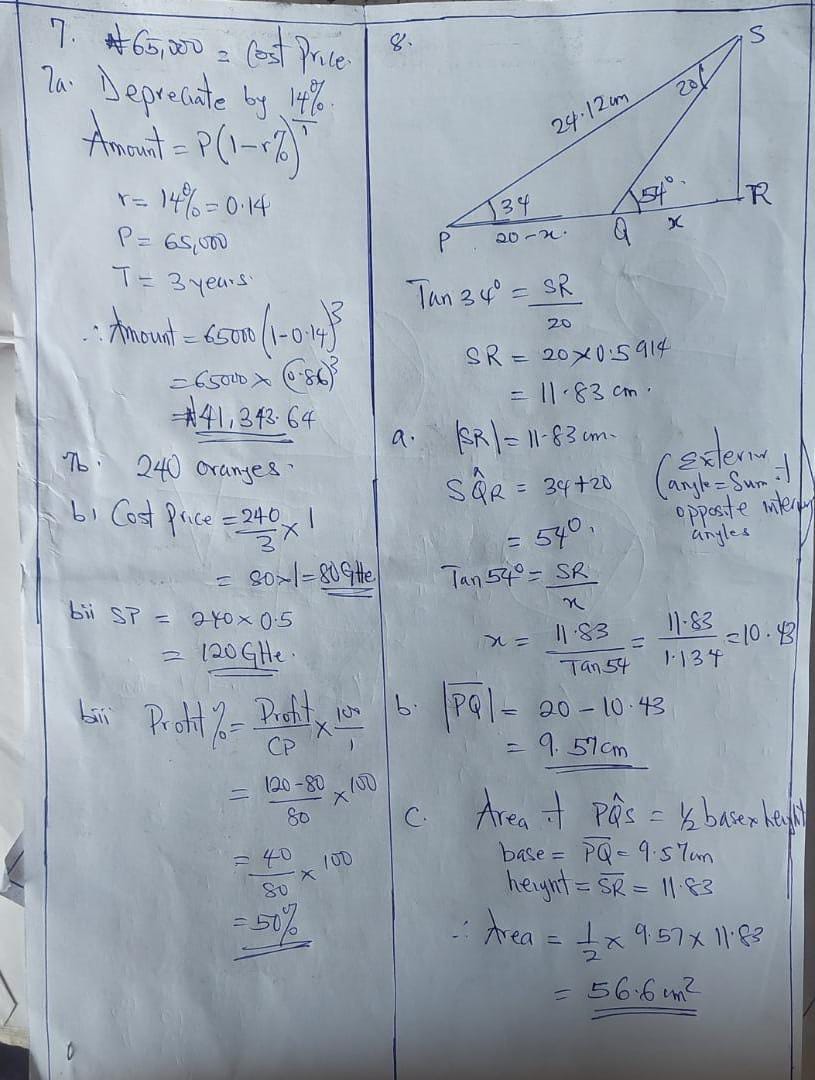 7. ₦65,000 = Cost Price.
7a. Depreciate by 14%.
Amount = P(1-r%)^T
r = 14% = 0.14
P = 65,000
T = 3 years.
∴ Amount = 65000(1-0.14)^3
= 65000 × (0.86)^3
= ₦41,343.64
7b. 240 oranges.
bi Cost Price = 240/3 × 1
= 80×1 = 80 GHe
bii SP = 240 × 0.5
= 120 GHe.
biii Profit % = Profit/CP × 100/1
= 120-80/80 × 100
= 40/80 × 100
= 50%
8.
S
20
24.12cm
34
54°
P
20-x.
Q
x
R
Tan 34° = SR/20
SR = 20×0.5914
= 11.83 cm.
a. |SR| = 11.83 cm.
SQ̂R = 34+20 (Exterior
angle = Sum of
opposite interior
angles)
= 54°.
Tan 54° = SR/x
x = 11.83/Tan 54 = 11.83/1.134 = 10.43
b. |PQ| = 20 - 10.43
= 9.57cm
c. Area of PQ̂S = ½ base × height
base = PQ = 9.57cm
height = SR = 11.83
∴ Area = 1/2 × 9.57 × 11.83
= 56.6 cm²